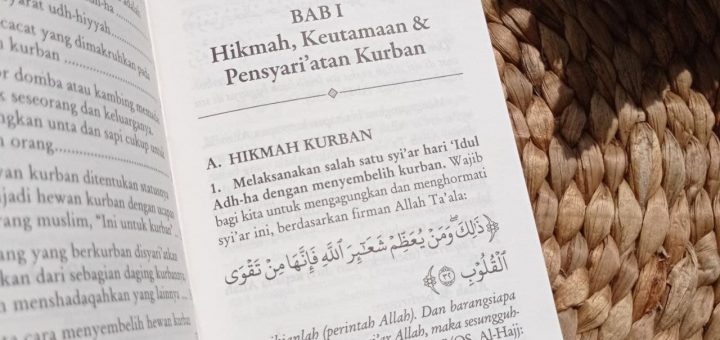 syarat udh-hiyyah
cacat yang dimakruhkan pada
kurban
domba atau kambing memadai
seseorang dan keluarganya.
unta dan sapi cukup untuk
orang
kurban ditentukan statusnya
hewan kurban dengan ucapan
muslim, “Ini untuk kurban”
yang berkurban disyari’atkan
dari sebagian daging kurbannya,
menshadaqahkan yang lainnya
cara menyembelih hewan kurban
BAB I
Hikmah, Keutamaan &
Pensyari’atan Kurban
A. HIKMAH KURBAN
1. Melaksanakan salah satu syi’ar hari ‘Idul
Adh-ha dengan menyembelih kurban. Wajib
bagi kita untuk mengagungkan dan menghormati
syi’ar ini, berdasarkan firman Allah Ta’ala:
﴿ذَٰلِكَ وَمَن يُعَظِّمْ شَعَٰٓئِرَ ٱللَّهِ فَإِنَّهَا مِن تَقْوَى
ٱلْقُلُوبِ ٣٢﴾
(perintah Allah). Dan barangsiapa
Allah, maka sesungguh-
(QS. Al-Hajj: